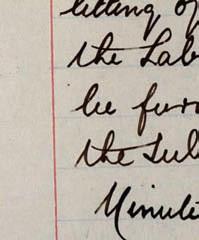 letting of
the Lab
be furn
the Sub
Minute